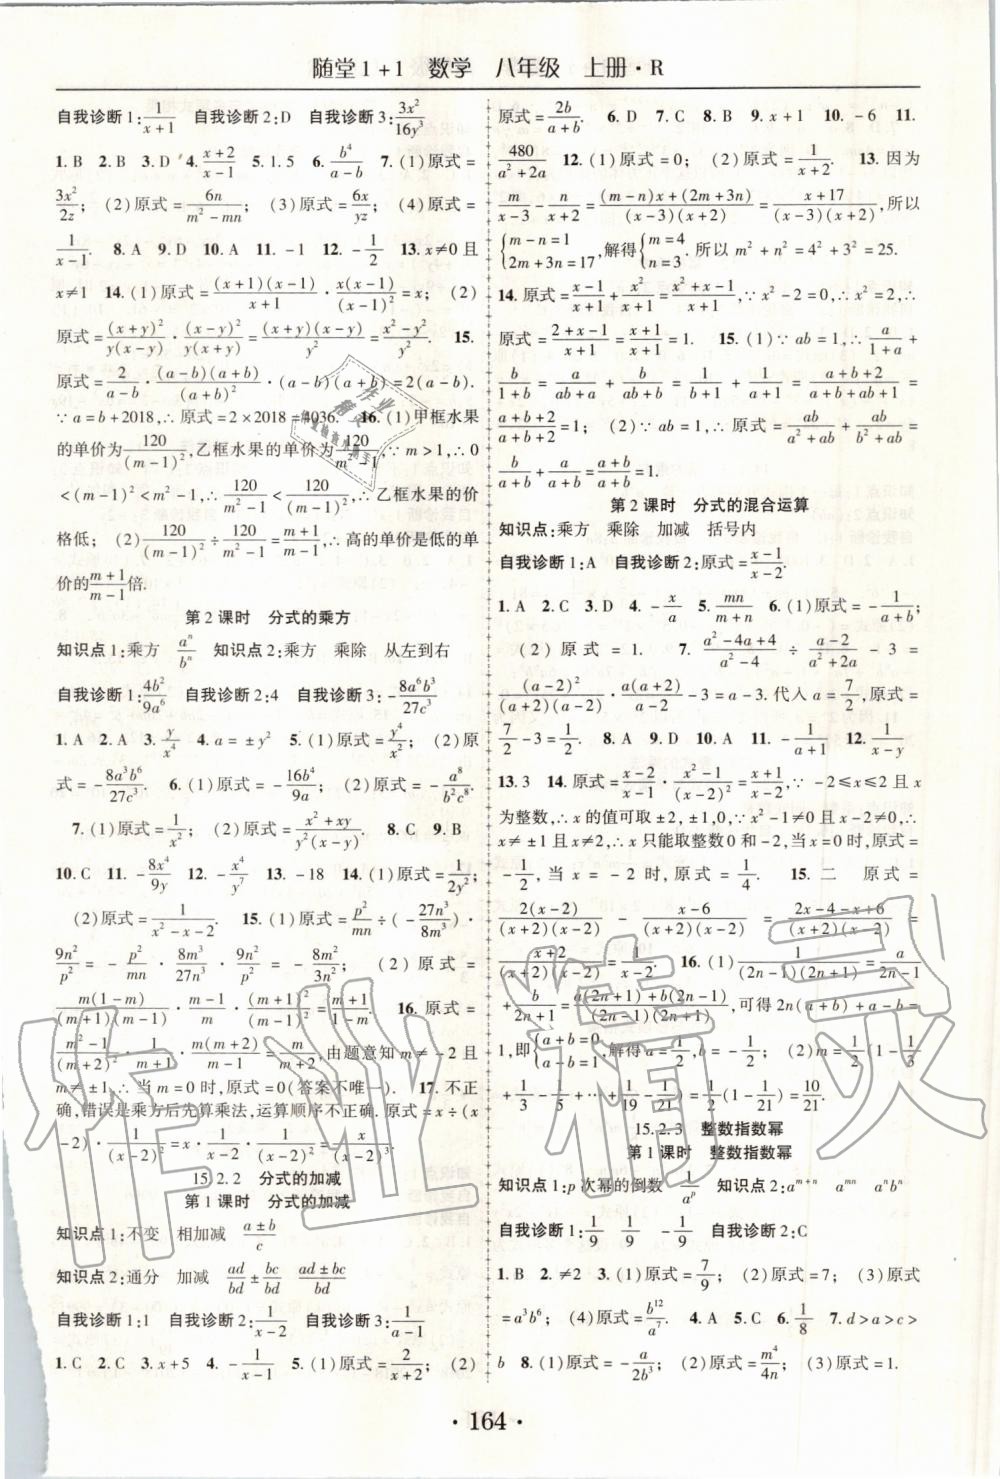 随堂1+1 数学 八年级 上册·R
自我诊断1:1/(x+1) 自我诊断2:D 自我诊断3:3x²/16y³
1.B 2.B 3.D 4.(x+2)/(x-1) 5.1.5 6.b⁴/(a-b) 7.(1)原式=
3x²/2z; (2)原式=6n/(m²-mn); (3)原式=6x/yz; (4)原式=
1/(x-1). 8.A 9.D 10.A 11.-1 12.-1/2 13.x≠0且
x≠1 14.(1)原式=(x+1)(x-1)/(x+1)·x(x-1)/(x-1)²=x; (2)
原式=(x+y)²/y(x-y)·(x-y)²/y(x+y)=(x+y)(x-y)/y²=(x²-y²)/y². 15.
原式=2/(a-b)·(a-b)(a+b)/(a+b)²·(a-b)(a+b)=2(a-b).
∵a=b+2018,∴原式=2×2018=4036. 16.(1)甲框水果
的单价为120/(m-1)²,乙框水果的单价为120/(m²-1),∵m>1,∴0
<(m-1)²<m²-1,∴120/(m²-1)<120/(m-1)²,∴乙框水果的价
格低; (2)120/(m-1)²÷120/(m²-1)=(m+1)/(m-1),∴高的单价是低的单
价的(m+1)/(m-1)倍.
第2课时 分式的乘方
知识点1:乘方 aⁿ/bⁿ 知识点2:乘方 乘除 从左到右
自我诊断1:4b²/9a⁶ 自我诊断2:4 自我诊断3:-8a⁶b³/27c³
1.A 2.A 3.y/x⁴ 4.a=±y² 5.(1)原式=y⁴/x²; (2)原
式=-8a³b⁶/27c³. 6.(1)原式=-16b⁴/9a; (2)原式=-a⁸/b²c⁸.
7.(1)原式=1/x²; (2)原式=(x²+xy)/y²(x-y). 8.C 9.B
10.C 11.-8x⁴/9y 12.-x⁴/y⁷ 13.-18 14.(1)原式=1/2y²;
(2)原式=1/(x²-x-2). 15.(1)原式=p²/mn÷(-27n³/8m³)·
9n²/p²=-p²/mn·8m³/27n³·9n²/p²=-8m²/3n²; (2)原式=
m(m-1)/(m+1)(m-1)·(m-1)/m·(m+1)²/(m-1)²=(m+1)/(1-m). 16.原式=
(m²-1)/(m+2)²·1/(m+1)·m(m+2)/(m-1)=m/(m+2),由题意知m≠-2且
m≠±1,∴当m=0时,原式=0(答案不唯一). 17.不正
确,错误是乘方后先算乘法,运算顺序不正确.原式=x÷(x
-2)·1/(x-2)²=x·1/(x-2)·1/(x-2)²=x/(x-2)³.
15.2.2 分式的加减
第1课时 分式的加减
知识点1:不变 相加减 (a±b)/c
知识点2:通分 加减 ad/bd±bc/bd (ad±bc)/bd
自我诊断1:1 自我诊断2:1/(x-2) 自我诊断3:1/(a-1)
1.C 2.C 3.x+5 4.-1/(x-1) 5.(1)原式=2/(x+2); (2)
原式=2b/(a+b). 6.D 7.C 8.B 9.x+1 10.-6 11.
480/(a²+2a) 12.(1)原式=0; (2)原式=1/(x+2). 13.因为
m/(x-3)-n/(x+2)=[(m-n)x+(2m+3n)]/(x-3)(x+2)=(x+17)/(x-3)(x+2),所以
{m-n=1, 2m+3n=17,解得{m=4, n=3. 所以m²+n²=4²+3²=25.
14.原式=(x-1)/(x+1)+x²/(x+1)=(x²+x-1)/(x+1),∵x²-2=0,∴x²=2,∴
原式=(2+x-1)/(x+1)=(x+1)/(x+1)=1. 15.(1)∵ab=1,∴a/(a+1)+
b/(1+b)=a/(ab+a)+b/(b+1)=1/(b+1)+b/(b+1)=(a+b+2)/(a+b+ab+1)=
(a+b+2)/(a+b+2)=1; (2)∵ab=1,∴原式=ab/(a²+ab)+ab/(b²+ab)=
b/(a+b)+a/(a+b)=(a+b)/(a+b)=1.
第2课时 分式的混合运算
知识点:乘方 乘除 加减 括号内
自我诊断1:A 自我诊断2:原式=(x-1)/(x-2).
1.A 2.C 3.D 4.-x/a 5.mn/(m+n) 6.(1)原式=-1/(a+b);
(2)原式=1. 7.(a²-4a+4)/(a²-4)÷(a-2)/(a²+2a)-3=
(a-2)²/(a+2)(a-2)·a(a+2)/(a-2)-3=a-3.代入a=7/2,原式=
7/2-3=1/2. 8.A 9.D 10.A 11.-1/(a+1) 12.1/(x-y)
13.3 14.原式=(x-2)/(x-1)·(x²-1)/(x-2)²=(x+1)/(x-2),∵-2≤x≤2且x
为整数,∴x的值可取±2,±1,0,∵x²-1≠0且x-2≠0,∴
x≠±1且x≠2,∴x只能取整数0和-2,当x=0时,原式=
-1/2,当x=-2时,原式=1/4. 15.二 原式=
2(x-2)/(x+2)(x-2)-(x-6)/(x+2)(x-2)=(2x-4-x+6)/(x+2)(x-2)=
(x+2)/(x+2)(x-2)=1/(x-2). 16.(1)1/(2n-1)(2n+1)=a/(2n-1)
+b/(2n+1)=[a(2n+1)+b(2n-1)]/(2n-1)(2n+1),可得2n(a+b)+a-b=
1,即{a+b=0, a-b=1,解得a=1/2,b=-1/2; (2)m=1/2(1-1/3
+1/3-1/5+…+1/19-1/21)=1/2(1-1/21)=10/21.
15.2.3 整数指数幂
第1课时 整数指数幂
知识点1:p次幂的倒数 1/aᵖ 知识点2:aᵐ⁺ⁿ aᵐⁿ aⁿbⁿ
自我诊断1:1/9 1/9 -1/9 自我诊断2:C
1.B 2.≠2 3.(1)原式=7/9; (2)原式=7; (3)原式
=a³b⁶; (4)原式=b¹²/a⁷. 4.C 5.C 6.1/8 7.d>a>c>
b 8.(1)原式=-a/2b³; (2)原式=m⁴/4n; (3)原式=1.
·164·
作业精灵
作业精灵